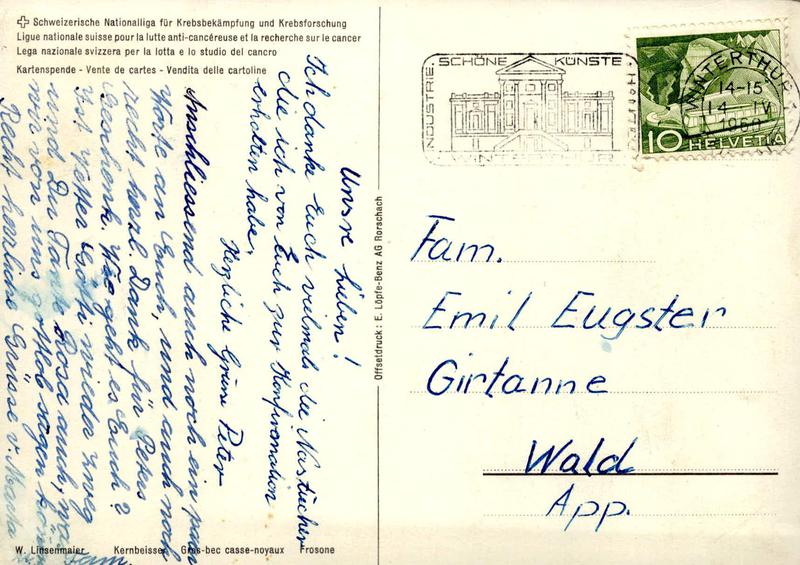 Schweizerische Nationalliga für Krebsbekämpfung und Krebsforschung
Ligue nationale suisse pour la lutte anti-cancéreuse et la recherche sur le cancer
Lega nazionale svizzera per la lotta e lo studio del cancro
Kartenspende - Vente de cartes - Vendita delle cartoline
Unsre Lieben!
Ich danke Euch vielmals die Nastücher
die ich von Euch zur Konfirmation
erhalten habe.
Herzliche Grüsse Peter
Anschliessend auch noch ein paar
Worte an Euch, und auch noch
recht herzl. Dank für Peters
Geschenk. Wie geht es Euch?
Ist Vetter Götti wieder zweg
und Du Tante Rosa auch, was
wir von uns gottlob sagen können
Recht herzliche Grüsse v. Martha
Fam.
W. Linsenmaier Kernbeisser Gros-bec casse-noyaux Frosone
Offsetdruck: E. Löpfe-Benz AG Rorschach
INDUSTRIE · SCHÖNE KÜNSTE
WINTERTHUR
WINTERTHUR 1
14-15
14 - IV
10 HELVETIA
Fam.
Emil Eugster
Girtanne
Wald
App.